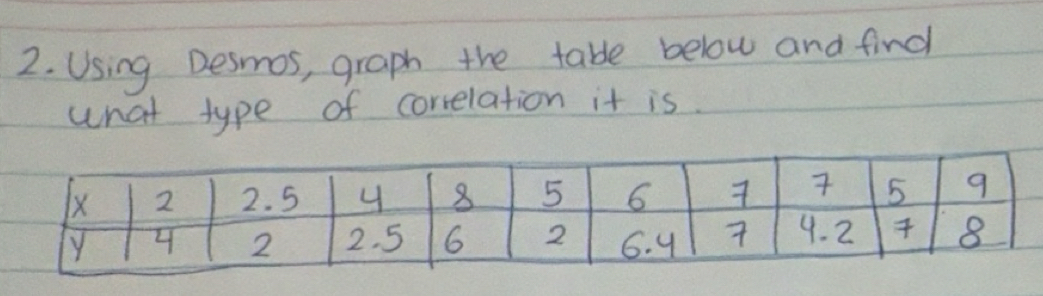 2. Using Desmos, graph the table below and find
what type of correlation it is.
X 2 2.5 4 8 5 6 7 7 5 9
Y 4 2 2.5 6 2 6.4 7 4.2 7 8